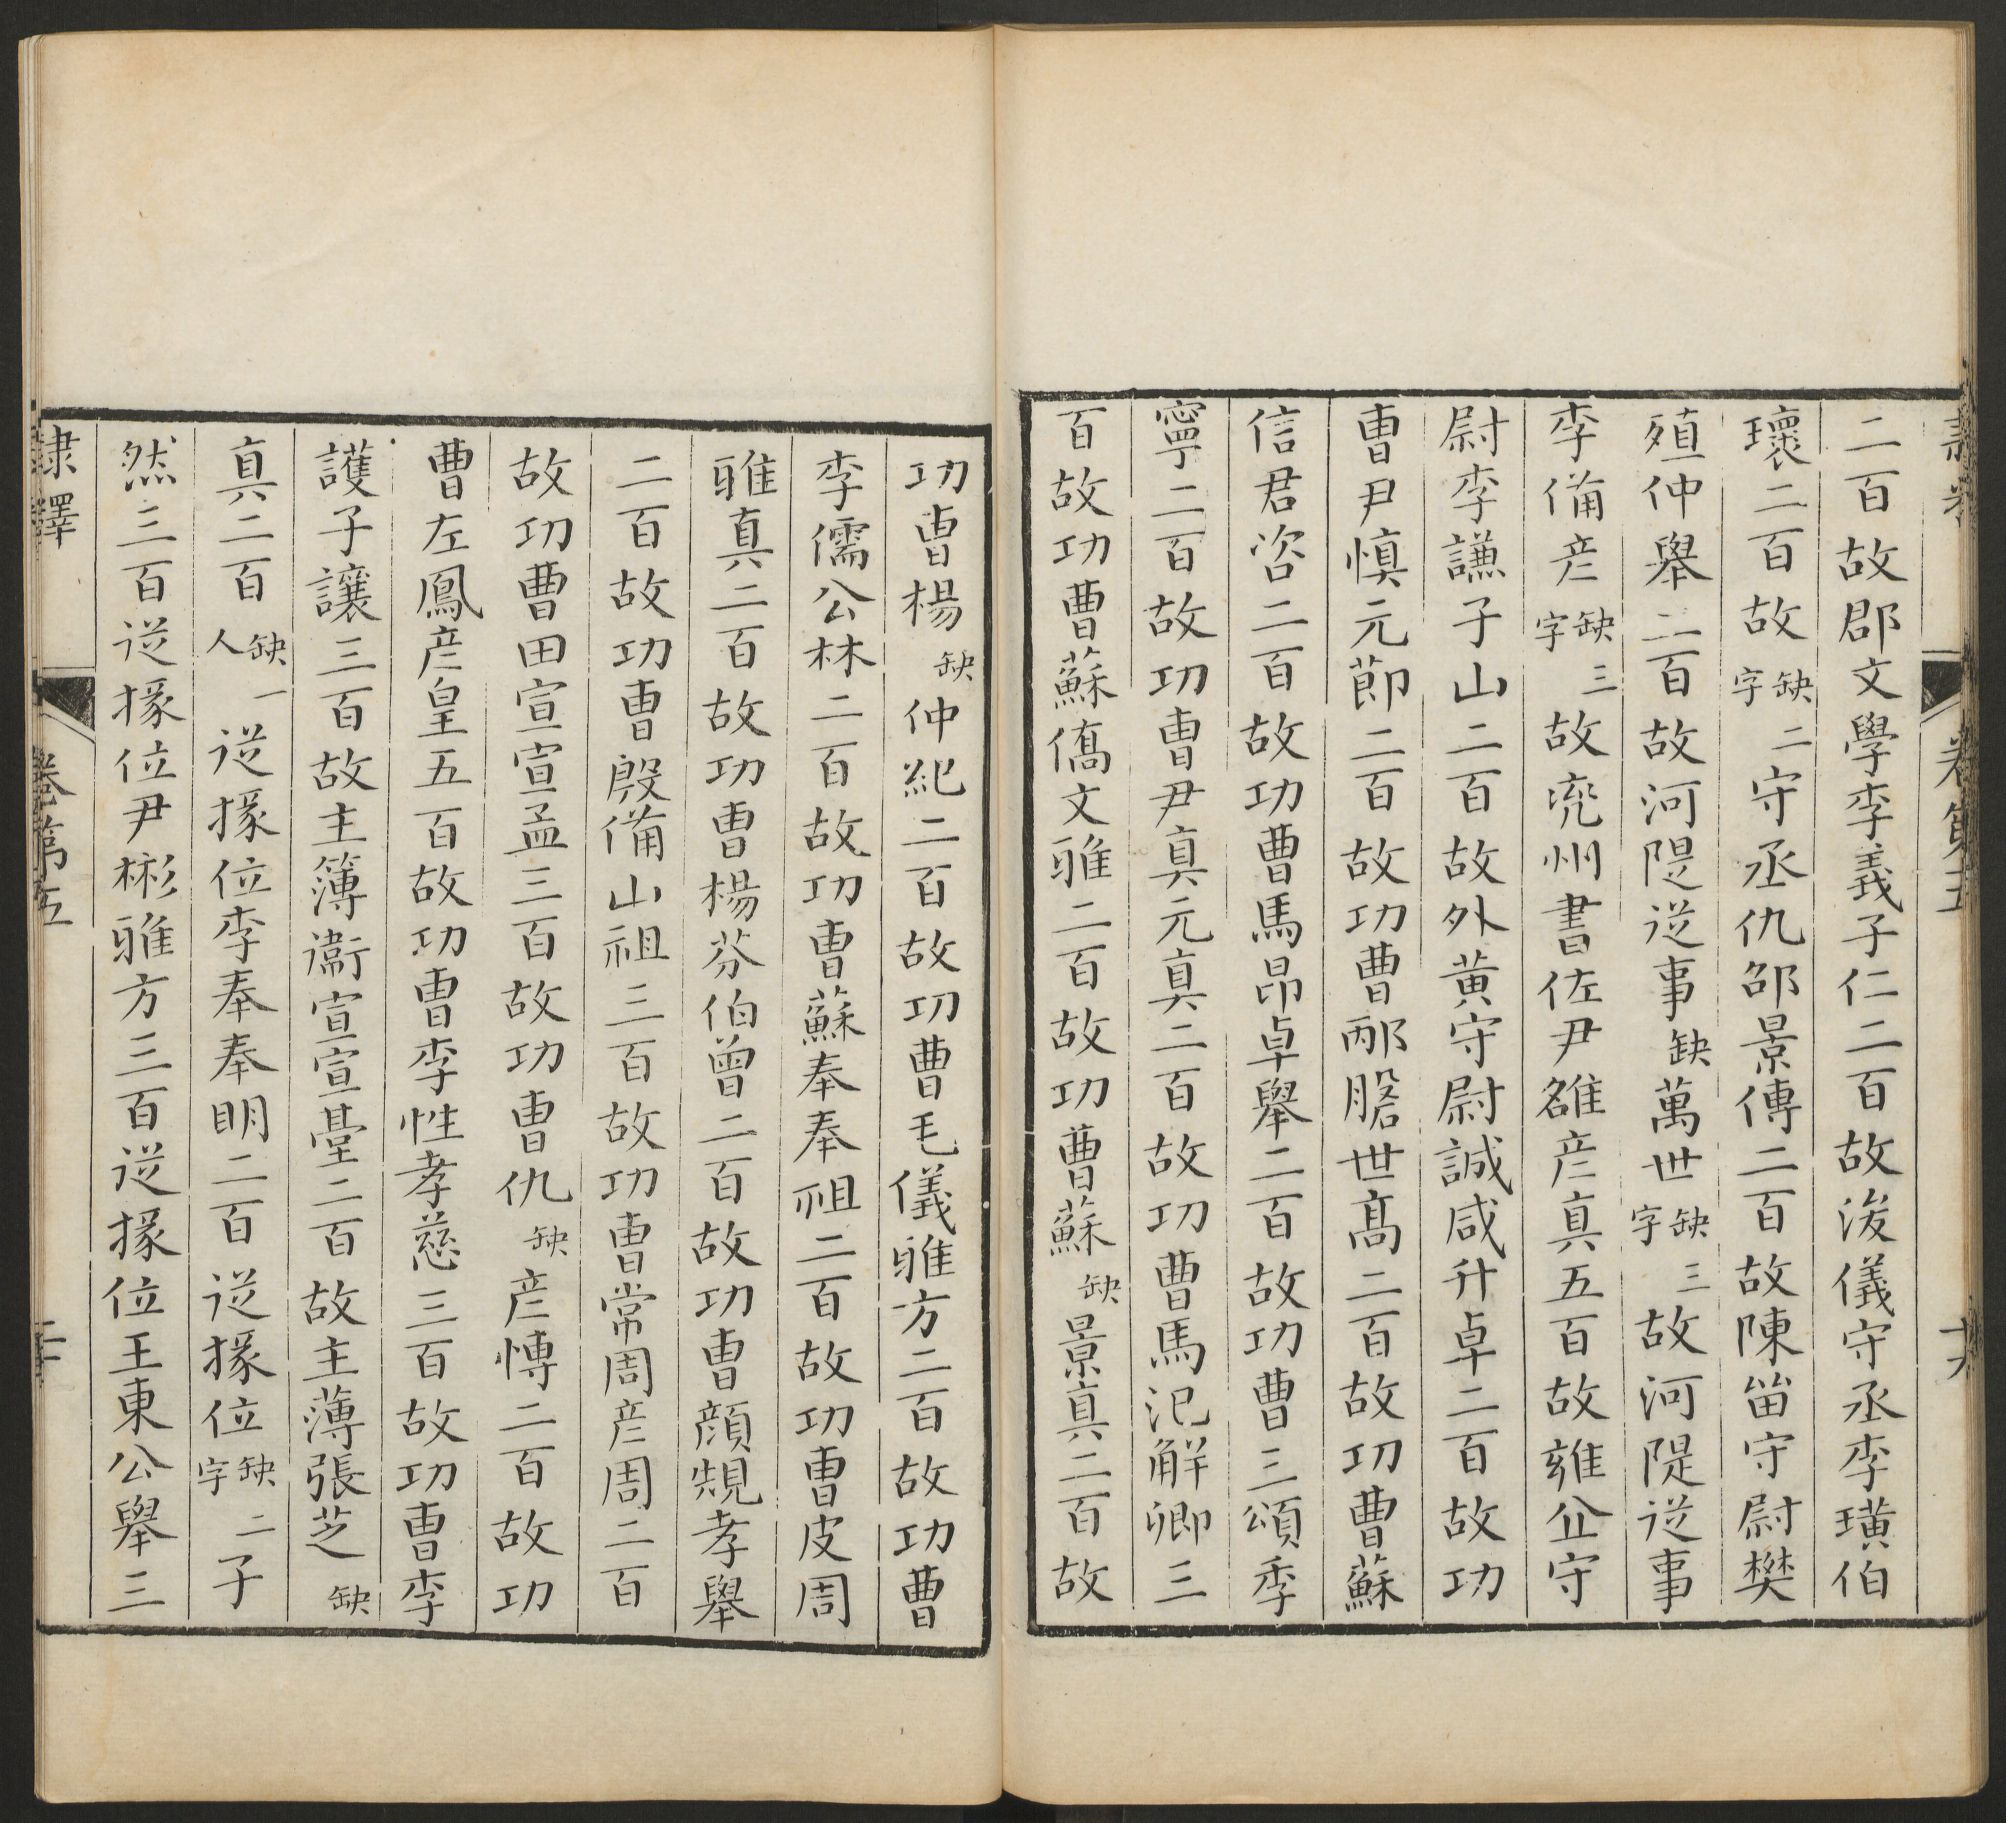 二百故郡文學李義子仁二百故浚儀守丞李璜伯
瓌二百故缺二字守丞仇邵景傳二百故陳留守尉樊
殖仲舉二百故河隄從事缺萬世缺三字故河隄從事
李備彥缺三字故兖州書佐尹雒彥真五百故雍丘守
尉李謙子山二百故外黃守尉誠咸升卓二百故功
曹尹慎元節二百故功曹邴瞻世高二百故功曹蘇
信君咨二百故功曹馬昂卓舉二百故功曹三頌季
寧二百故功曹尹真元真二百故功曹馬汜解卿三
百故功曹蘇僑文雅二百故功曹蘇缺景真二百故
功曹楊缺仲紀二百故功曹毛儀雅方二百故功曹
李儒公林二百故功曹蘇奉奉祖二百故功曹皮周
雅真二百故功曹楊芬伯曾二百故功曹顏覬孝舉
二百故功曹殷備山祖三百故功曹常周彥周二百
故功曹田宣宣孟三百故功曹仇缺彥愽二百故功
曹左鳳彥皇五百故功曹李性孝慈三百故功曹李
護子讓三百故主簿衞宣宣臺二百故主薄張芝缺
真二百缺一人從掾位李奉奉明二百從掾位缺二字子
然三百從掾位尹彬雅方三百從掾位王東公舉三
隸釋 卷第五